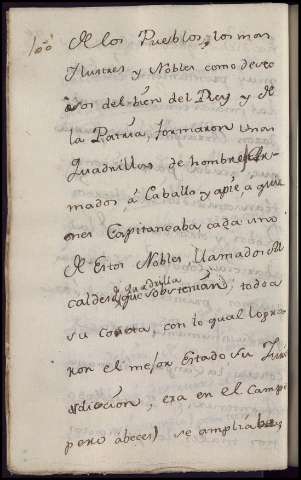 100
de los Pueblos, los mas
Ilustres y Nobles como deseo
sos del bien del Rey y de
la Patria, formaron unas
Quadrillas de hombres Ar-
mados, á Caballo y apie, a quie
nes Capitaneaba cada uno
de Estos Nobles, llamados Al
caldes de quadrilla que sobstenian, todo a
su costa, con lo qual lo pusie
ron el mejor Estado su Juris
dicion, era en el Campo
pero abeces se ampliaba